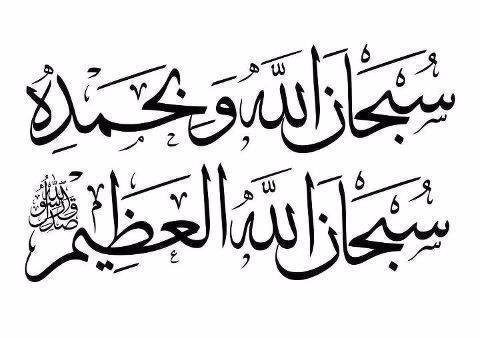 سُبْحَانَ اللَّهُ وَبِحَمْدِهِ
سُبْحَانَ اللَّهُ الْعَظِيمِ
صدق رسول الله